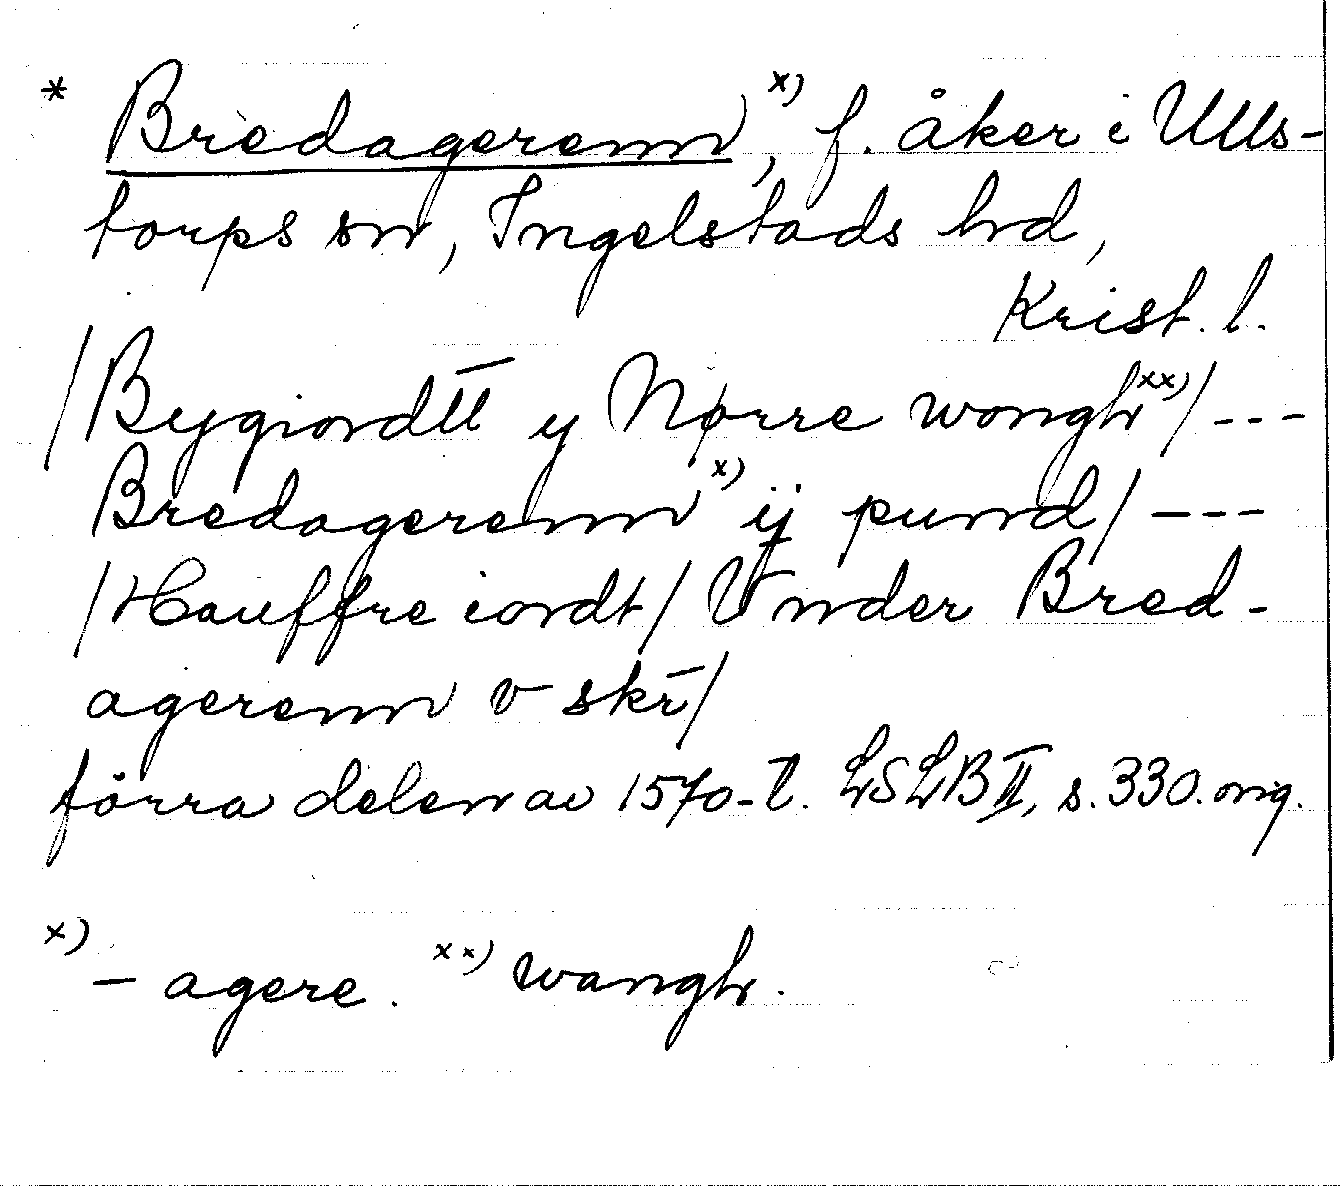 * Bredagerenn x), f. åker i Ulls-
torps sn, Ingelstads hrd,
Krist. l.
/Bygiordtt y Nørre wongh xx)/ ---
Bredagerenn x) ij pund/ ---
/Hauffre iordt/ Vnder Bred-
agerenn v skr̄/
förra delen av 1570-t. LSLB II, s. 330. orig.
x) - agere. xx) wangh.